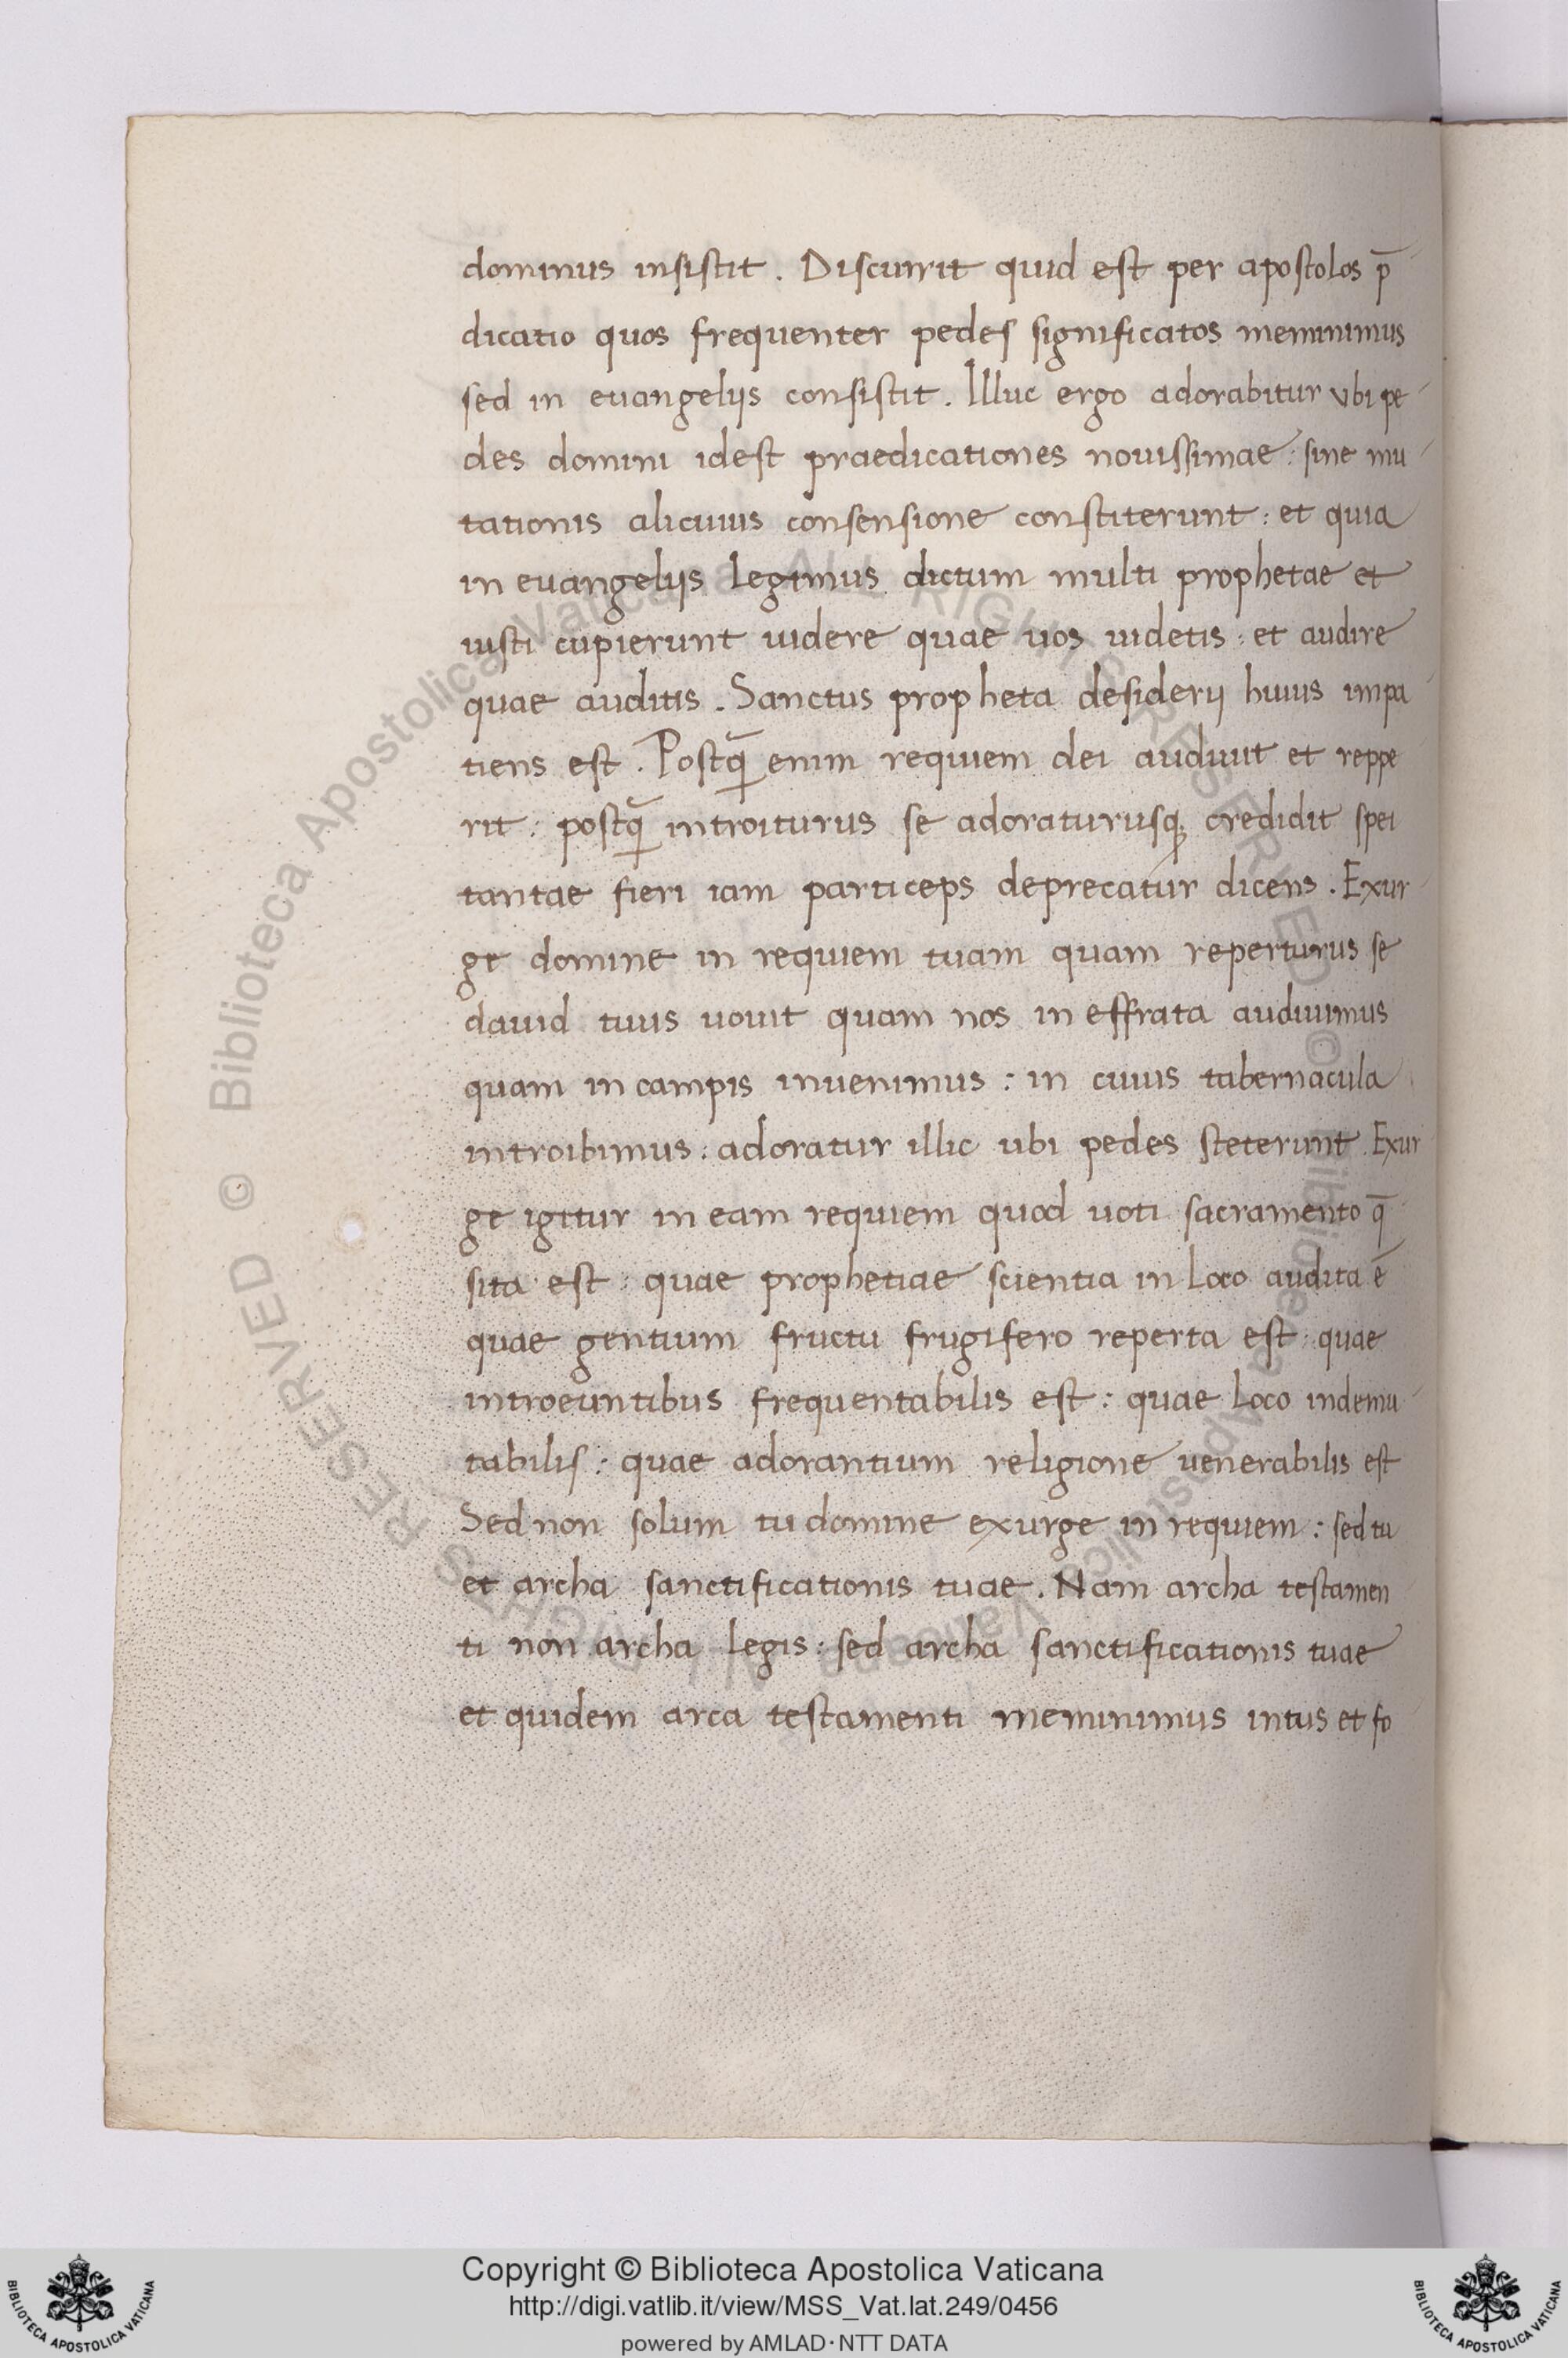 dominus insistit. Discurrit quid est per apostolos p̄
dicatio quos frequenter pedes significatos meminimus
sed in euangelijs consistit. Illuc ergo adorabitur vbi pe
des domini idest praedicationes nouissimae: sine mu
tationis alicuius consensione constiterunt: et quia
in euangelijs legimus dictum multi prophetae et
iusti cupierunt uidere quae uos uidetis: et audire
quae auditis. Sanctus propheta desiderij huius impa
tiens est. Postꝗ̃ enim requiem dei audiuit et reppe
rit: postꝗ̃ introiturus se adoraturusq; credidit spei
tantae fieri iam particeps deprecatur dicens. Exur
ge domine in requiem tuam quam reperturus se
dauid tuus uouit quam nos in effrata audiuimus
quam in campis inuenimus: in cuius tabernacula
introibimus: adoratur illic ubi pedes steterunt. Exur
ge igitur in eam requiem quod uoti sacramento q̄
sita est: quae prophetiae scientia in loco audita ē
quae gentium fructu frugifero reperta est: quae
introeuntibus frequentabilis est: quae loco indemu
tabilis: quae adorantium religione uenerabilis est
Sed non solum tu domine exurge in requiem: sed tu
et archa sanctificationis tuae. Nam archa testamen
ti non archa legis: sed archa sanctificationis tuae
et quidem arca testamenti meminimus intus et fo
Biblioteca Apostolica Vaticana ALL RIGHTS RESERVED ©
Biblioteca Apostolica Vaticana ALL RIGHTS RESERVED ©
Copyright © Biblioteca Apostolica Vaticana
http://digi.vatlib.it/view/MSS_Vat.lat.249/0456
powered by AMLAD·NTT DATA
BIBLIOTECA APOSTOLICA VATICANA
BIBLIOTECA APOSTOLICA VATICANA